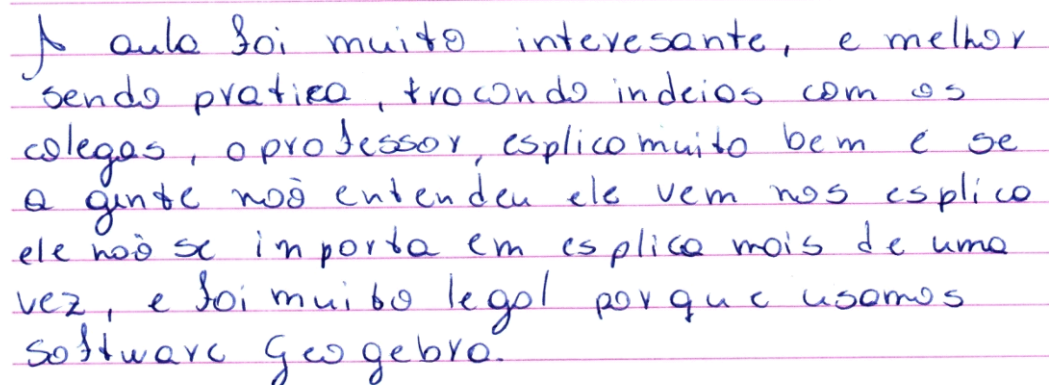 A aula foi muito interesante, e melhor
sendo pratica, trocando indeias com os
colegas, o professor, esplica muito bem e se
a gente naõ entendeu ele vem nos esplica
ele naõ se importa em esplica mais de uma
vez, e foi muito legal porque usamos
software Geogebra.